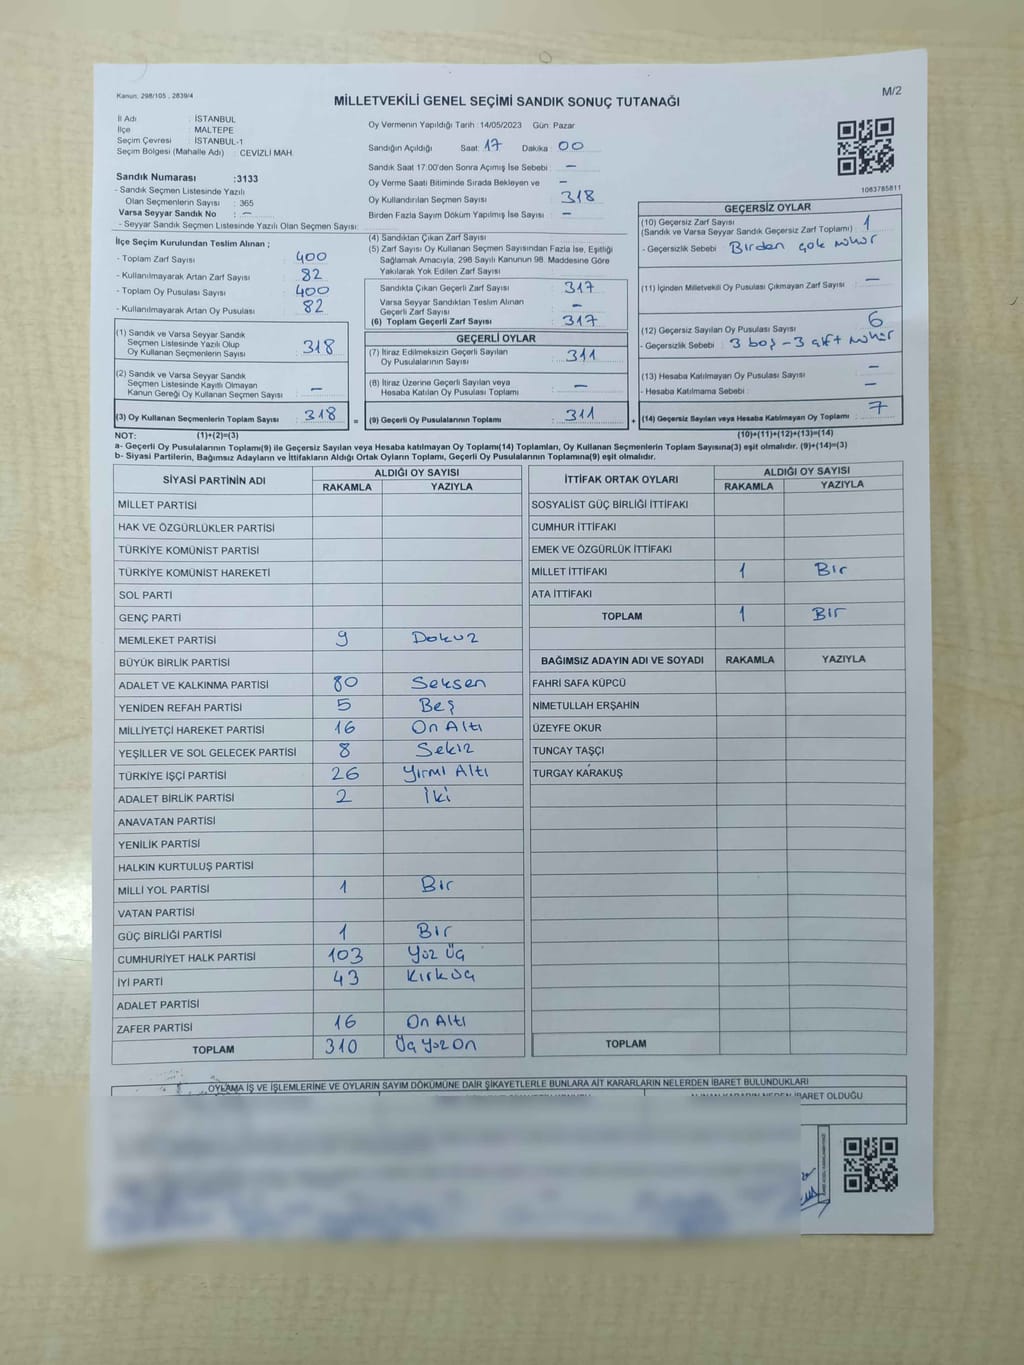 Kanun: 298/105 , 2839/4
M/2
MİLLETVEKİLİ GENEL SEÇİMİ SANDIK SONUÇ TUTANAĞI
İl Adı : İSTANBUL
İlçe : MALTEPE
Seçim Çevresi : İSTANBUL-1
Seçim Bölgesi (Mahalle Adı) : CEVİZLİ MAH.
Sandık Numarası :3133
- Sandık Seçmen Listesinde Yazılı
Olan Seçmenlerin Sayısı : 365
Varsa Seyyar Sandık No : —
- Seyyar Sandık Seçmen Listesinde Yazılı Olan Seçmen Sayısı:
Oy Vermenin Yapıldığı Tarih :14/05/2023 Gün: Pazar
Sandığın Açıldığı Saat: 17 Dakika : 00
Sandık Saat 17:00'den Sonra Açımış İse Sebebi : —
Oy Verme Saati Bitiminde Sırada Bekleyen ve : —
Oy Kullandırılan Seçmen Sayısı : 318
Birden Fazla Sayım Döküm Yapılmış İse Sayısı : —
1083785811
İlçe Seçim Kurulundan Teslim Alınan ;
- Toplam Zarf Sayısı : 400
- Kullanılmayarak Artan Zarf Sayısı : 82
- Toplam Oy Pusulası Sayısı : 400
- Kullanılmayarak Artan Oy Pusulası : 82
(1) Sandık ve Varsa Seyyar Sandık
Seçmen Listesinde Yazılı Olup
Oy Kullanan Seçmenlerin Sayısı : 318
(2) Sandık ve Varsa Seyyar Sandık
Seçmen Listesinde Kayıtlı Olmayan
Kanun Gereği Oy Kullanan Seçmen Sayısı : —
(3) Oy Kullanan Seçmenlerin Toplam Sayısı : 318 =
(4) Sandıktan Çıkan Zarf Sayısı
(5) Zarf Sayısı Oy Kullanan Seçmen Sayısından Fazla İse, Eşitliği
Sağlamak Amacıyla, 298 Sayılı Kanunun 98. Maddesine Göre
Yakılarak Yok Edilen Zarf Sayısı :
Sandıkta Çıkan Geçerli Zarf Sayısı : 317
Varsa Seyyar Sandıktan Teslim Alınan
Geçerli Zarf Sayısı : —
(6) Toplam Geçerli Zarf Sayısı : 317
GEÇERLİ OYLAR
(7) İtiraz Edilmeksizin Geçerli Sayılan
Oy Pusulalarının Sayısı : 311
(8) İtiraz Üzerine Geçerli Sayılan veya
Hesaba Katılan Oy Pusulası Toplamı : —
(9) Geçerli Oy Pusulalarının Toplamı : 311 +
GEÇERSİZ OYLAR
(10) Geçersiz Zarf Sayısı
(Sandık ve Varsa Seyyar Sandık Geçersiz Zarf Toplamı) : 1
- Geçersizlik Sebebi : Birden çok mühür
(11) İçinden Milletvekili Oy Pusulası Çıkmayan Zarf Sayısı : —
(12) Geçersiz Sayılan Oy Pusulası Sayısı : 6
- Geçersizlik Sebebi : 3 boş - 3 çift mühür
(13) Hesaba Katılmayan Oy Pusulası Sayısı : —
- Hesaba Katılmama Sebebi : —
(14) Geçersiz Sayılan veya Hesaba Katılmayan Oy Toplamı : 7
NOT: (1)+(2)=(3) (10)+(11)+(12)+(13)=(14)
a- Geçerli Oy Pusulalarının Toplamı(9) ile Geçersiz Sayılan veya Hesaba katılmayan Oy Toplamı(14) Toplamları, Oy Kullanan Seçmenlerin Toplam Sayısına(3) eşit olmalıdır. (9)+(14)=(3)
b- Siyasi Partilerin, Bağımsız Adayların ve İttifakların Aldığı Ortak Oyların Toplamı, Geçerli Oy Pusulalarının Toplamına(9) eşit olmalıdır.
SİYASİ PARTİNİN ADI ALDIĞI OY SAYISI
RAKAMLA YAZIYLA
MİLLET PARTİSİ
HAK VE ÖZGÜRLÜKLER PARTİSİ
TÜRKİYE KOMÜNİST PARTİSİ
TÜRKİYE KOMÜNİST HAREKETİ
SOL PARTİ
GENÇ PARTİ
MEMLEKET PARTİSİ 9 Dokuz
BÜYÜK BİRLİK PARTİSİ
ADALET VE KALKINMA PARTİSİ 80 Seksen
YENİDEN REFAH PARTİSİ 5 Beş
MİLLİYETÇİ HAREKET PARTİSİ 16 On Altı
YEŞİLLER VE SOL GELECEK PARTİSİ 8 Sekiz
TÜRKİYE İŞÇİ PARTİSİ 26 Yirmi Altı
ADALET BİRLİK PARTİSİ 2 İki
ANAVATAN PARTİSİ
YENİLİK PARTİSİ
HALKIN KURTULUŞ PARTİSİ
MİLLİ YOL PARTİSİ 1 Bir
VATAN PARTİSİ
GÜÇ BİRLİĞİ PARTİSİ 1 Bir
CUMHURİYET HALK PARTİSİ 103 Yüz Üç
İYİ PARTİ 43 Kırk Üç
ADALET PARTİSİ
ZAFER PARTİSİ 16 On Altı
TOPLAM 310 Üç Yüz On
İTTİFAK ORTAK OYLARI ALDIĞI OY SAYISI
RAKAMLA YAZIYLA
SOSYALİST GÜÇ BİRLİĞİ İTTİFAKI
CUMHUR İTTİFAKI
EMEK VE ÖZGÜRLÜK İTTİFAKI
MİLLET İTTİFAKI 1 Bir
ATA İTTİFAKI
TOPLAM 1 Bir
BAĞIMSIZ ADAYIN ADI VE SOYADI RAKAMLA YAZIYLA
FAHRİ SAFA KÜPCÜ
NİMETULLAH ERŞAHİN
ÜZEYFE OKUR
TUNCAY TAŞÇI
TURGAY KARAKUŞ
TOPLAM
OYLAMA İŞ VE İŞLEMLERİNE VE OYLARIN SAYIM DÖKÜMÜNE DAİR ŞİKAYETLERLE BUNLARA AİT KARARLARIN NELERDEN İBARET BULUNDUKLARI
ALINAN KARARIN NEDEN İBARET OLDUĞU